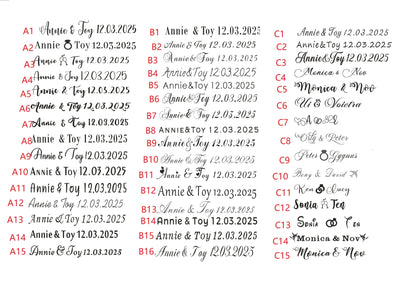 A1 Annie & Toy 12.03.2025
A2 Annie Toy 12.03.2025
A3 Annie & Toy 12.03.2025
A4 Annie & Toy 12.03.2025
A5 Annie & Toy 12.03.2025
A6 Annie & Toy 12.03.2025
A7 Annie & Toy 12.03.2025
A8 Annie & Toy 12.03.2025
A9 Annie & Toy 12.03.2025
A10 Annie & Toy 12.03.2025
A11 Annie & Toy 12.03.2025
A12 Annie & Toy 12.03.2025
A13 Annie & Toy 12.03.2025
A14 Annie & Toy 12.03.2025
A15 Annie & Toy 12.03.2025
B1 Annie & Toy 12.03.2025
B2 Annie & Toy 12.03.2025
B3 Annie & Toy 12.03.2025
B4 Annie & Toy 12.03.2025
B5 Annie & Toy 12.03.2025
B6 Annie & Toy 12.03.2025
B7 Annie & Toy 12.03.2025
B8 Annie & Toy 12.03.2025
B9 Annie & Toy 12.03.2025
B10 Annie & Toy 12.03.2025
B11 Annie & Toy 12.03.2025
B12 Annie & Toy 12.03.2025
B13 Annie & Toy 12.03.2025
B14 Annie & Toy 12.03.2025
B15 Annie & Toy 12.03.2025
B16 Annie & Toy 12.03.2025
C1 Annie & Toy 12.03.2025
C2 Annie & Toy 12.03.2025
C3 Annie & Toy 12.03.2025
C4 Monica & Noo
C5 Monica & Noo
C6 &
C7 A &
C8 &
C9 Peter
C10 & David
C11 Ken Lucy
C12 Sonia Teo
C13 Sonia Teo
C14 Monica & Nov
C15 Monica & Nov